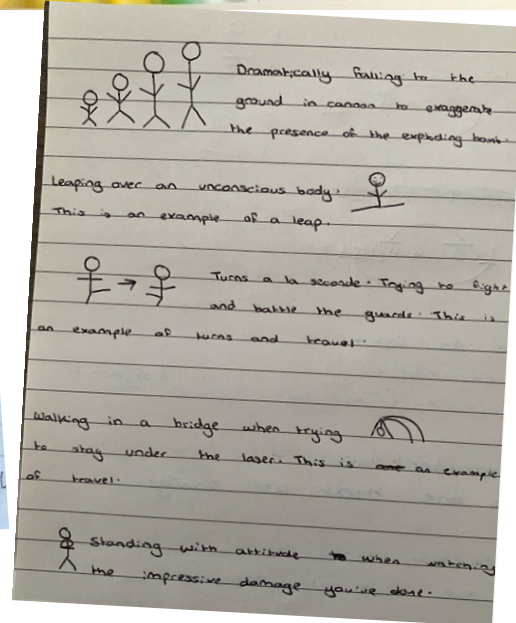 Dramatically falling to the
ground in cannon to exaggerate
the presence of the exploding bomb.
Leaping over an unconscious body.
This is an example of a leap.
Turns a la seconde. Trying to fight
and battle the guards. This is
an example of turns and travel.
Walking in a bridge when trying
to stay under the laser. This is an example
of travel.
Standing with attitude when watching
the impressive damage you've done.